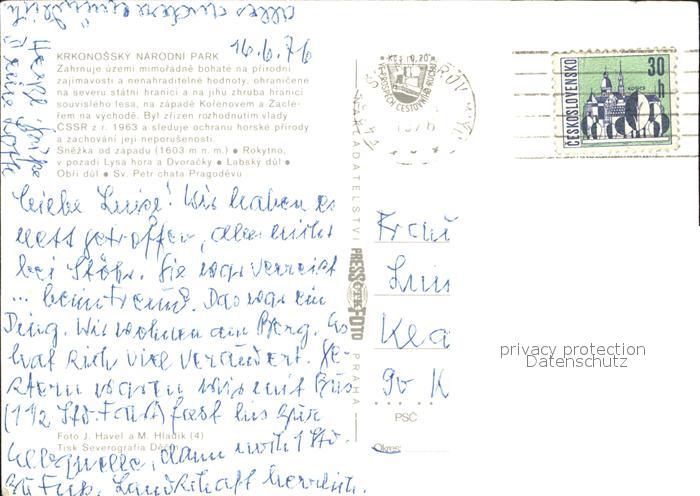 KRKONOŠSKÝ NÁRODNÍ PARK
16.6.76
Zahrnuje území mimořádně bohaté na přírodní
zajímavosti a nenahraditelné hodnoty, ohraničené
na severu státní hranicí a na jihu zhruba hranicí
souvislého lesa, na západě Kořenovem a Žaclé-
řem na východě. Byl zřízen rozhodnutím vlády
ČSSR z r. 1963 a sleduje ochranu horské přírody
a zachování její neporušenosti.
Sněžka od západu (1603 m n. m.) • Rokytno,
v pozadí Lysá hora a Dvoračky • Labský důl •
Obří důl • Sv. Petr chata Pragoděvu
Liebe Luise! Wir haben es
nett getroffen, aber nicht
bei Stöhr. Sie war verreist
... beim Freund. Das war ein
Ding. Wir wohnen am Berg. Es
hat sich viel verändert. Ge-
stern waren wir mit Bus
(1 1/2 Std. Fahrt) fast bis zur
Elbquelle, dann 
zu Fuß. Landschaft herrlich.
Foto J. Havel a M. Hladík (4)
Tisk Severografia Děčín
Herzl. Grüße
Deine
NAKLADATELSTVÍ PRESSFOTO PRAHA
ČTK
ČESKOSLOVENSKO
30
h
Frau
Luis
Kla
90 K
PSČ
Okres
privacy protection
Datenschutz